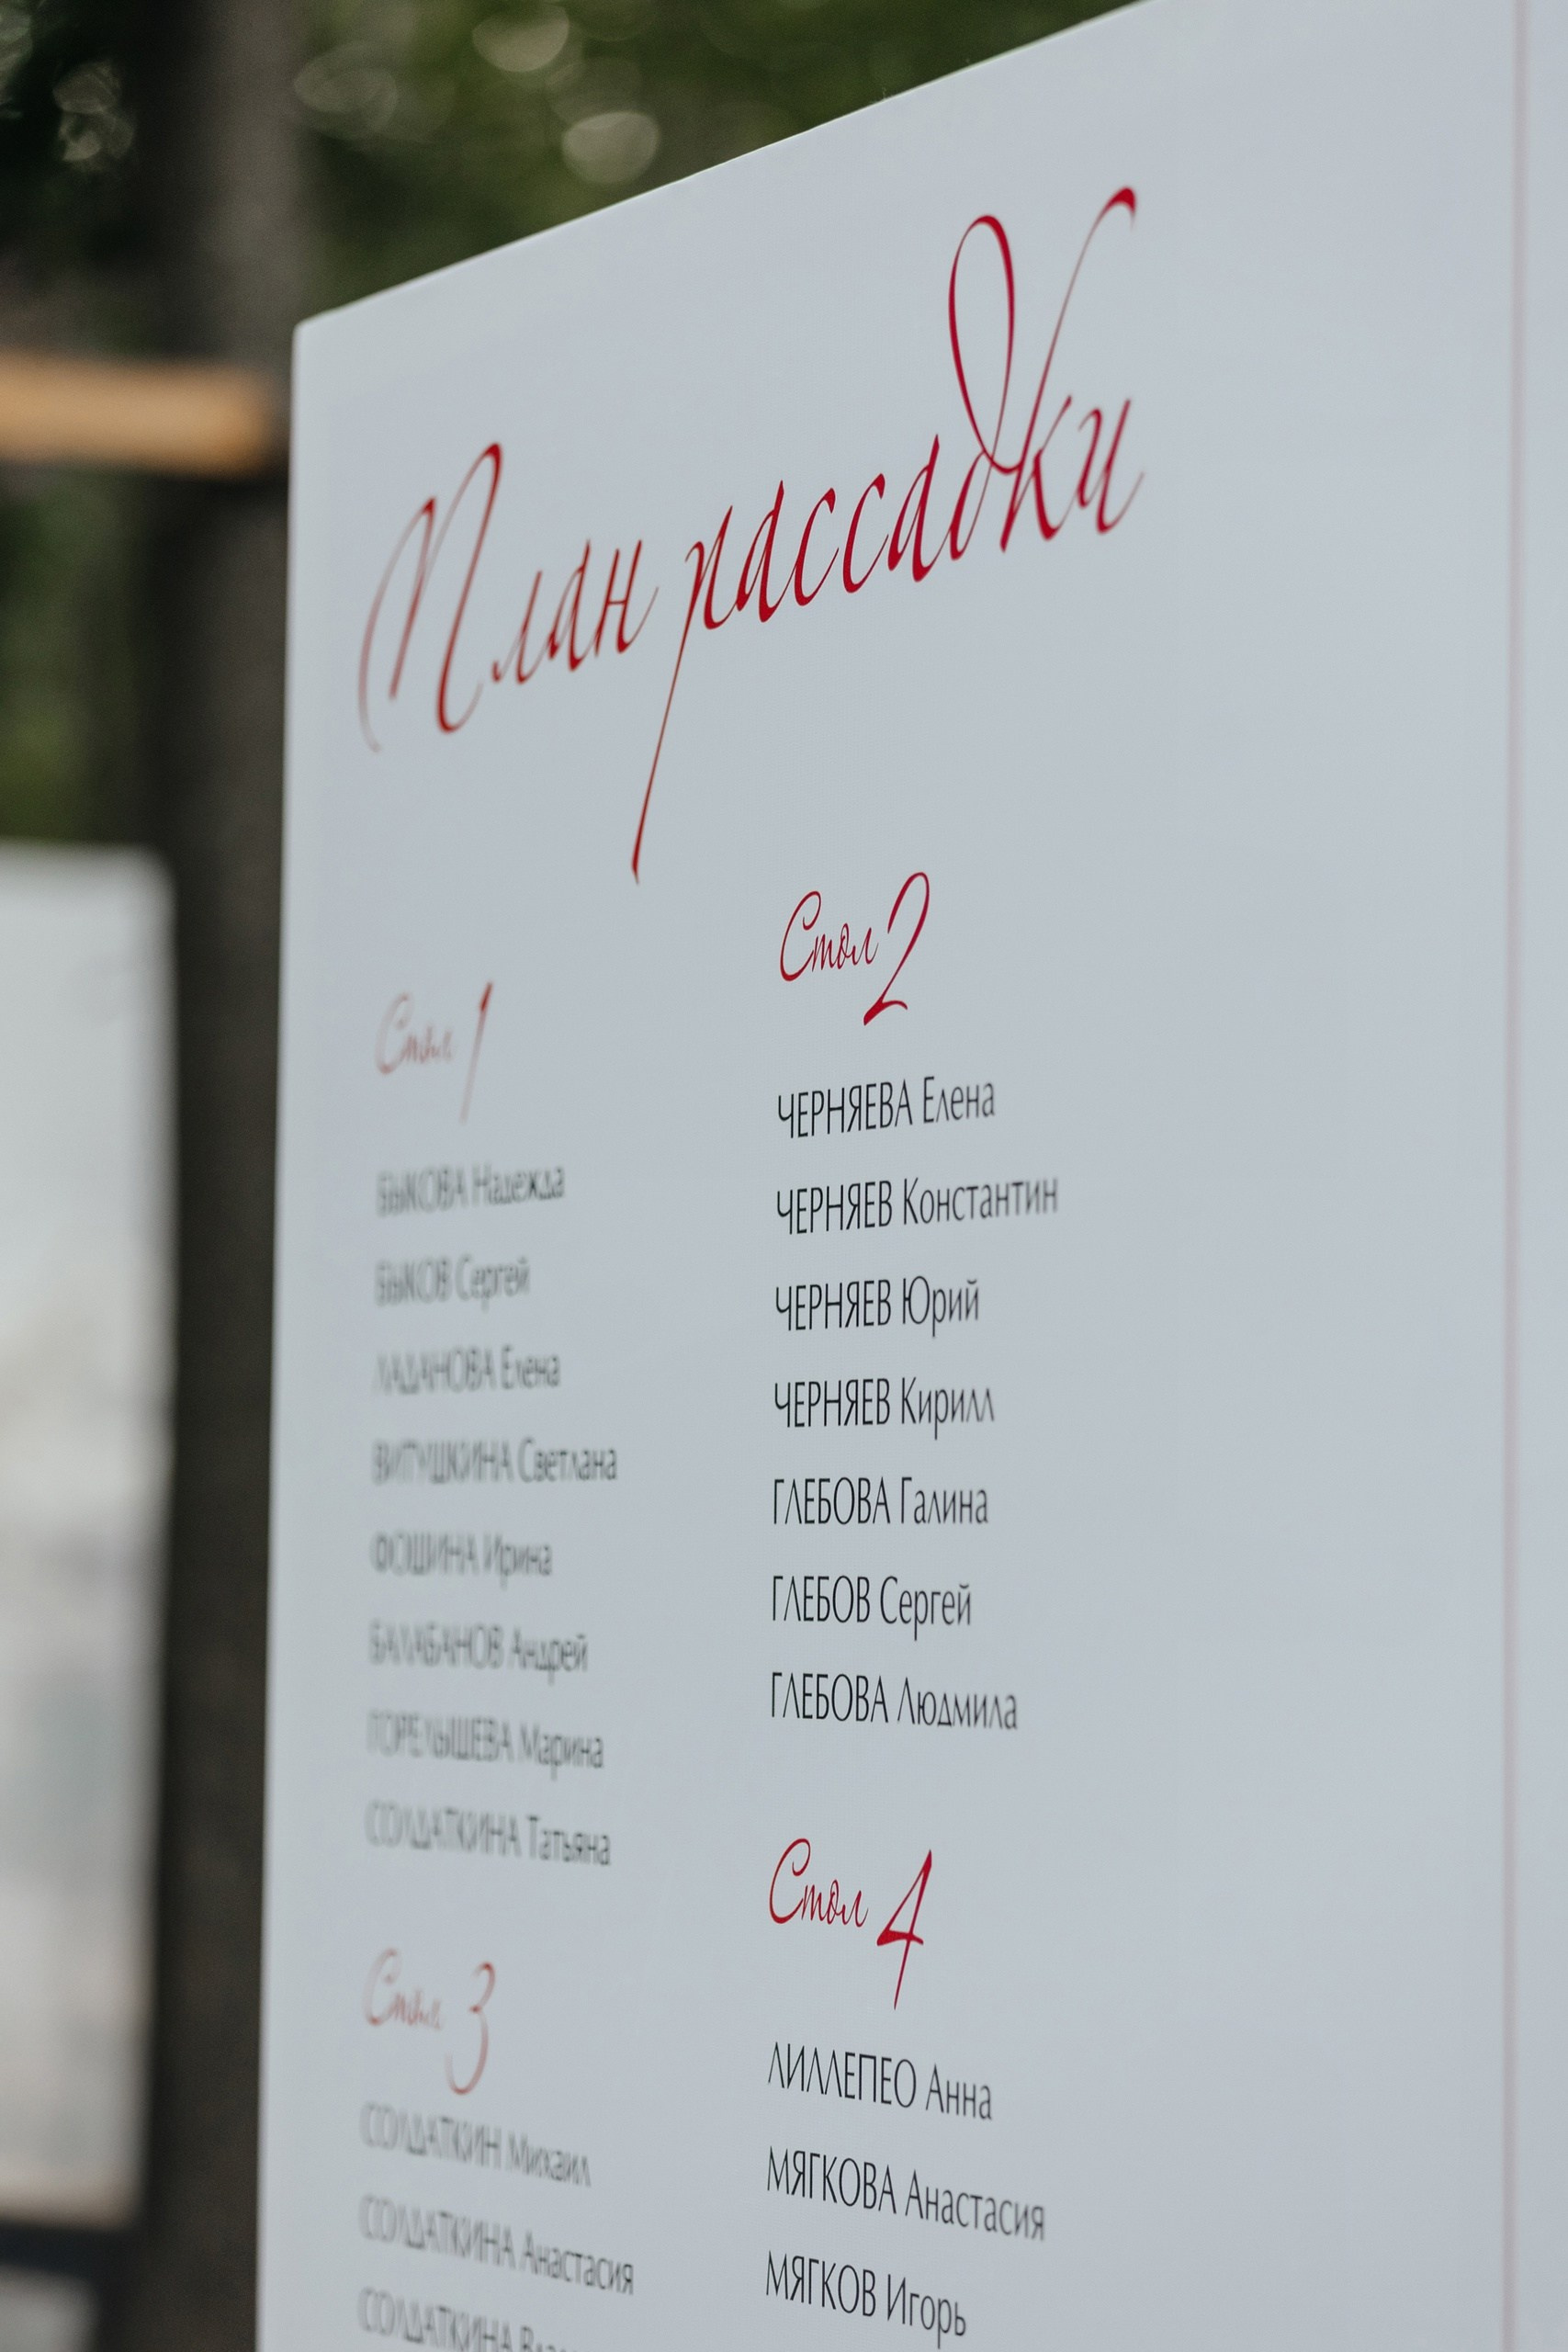 План рассадки
Стол 1
БЫКОВА Надежда
БЫКОВ Сергей
ЛАДАНОВА Елена
ВИТУШКИНА Светлана
ФОШИНА Ирина
БАЛАБАНОВ Андрей
ГОРЕЛЫШЕВА Марина
СОЛДАТКИНА Татьяна
Стол 2
ЧЕРНЯЕВА Елена
ЧЕРНЯЕВ Константин
ЧЕРНЯЕВ Юрий
ЧЕРНЯЕВ Кирилл
ГЛЕБОВА Галина
ГЛЕБОВ Сергей
ГЛЕБОВА Людмила
Стол 3
СОЛДАТКИН Михаил
СОЛДАТКИНА Анастасия
СОЛДАТКИНА
Стол 4
ЛИЛЛЕПЕО Анна
МЯГКОВА Анастасия
МЯГКОВ Игорь